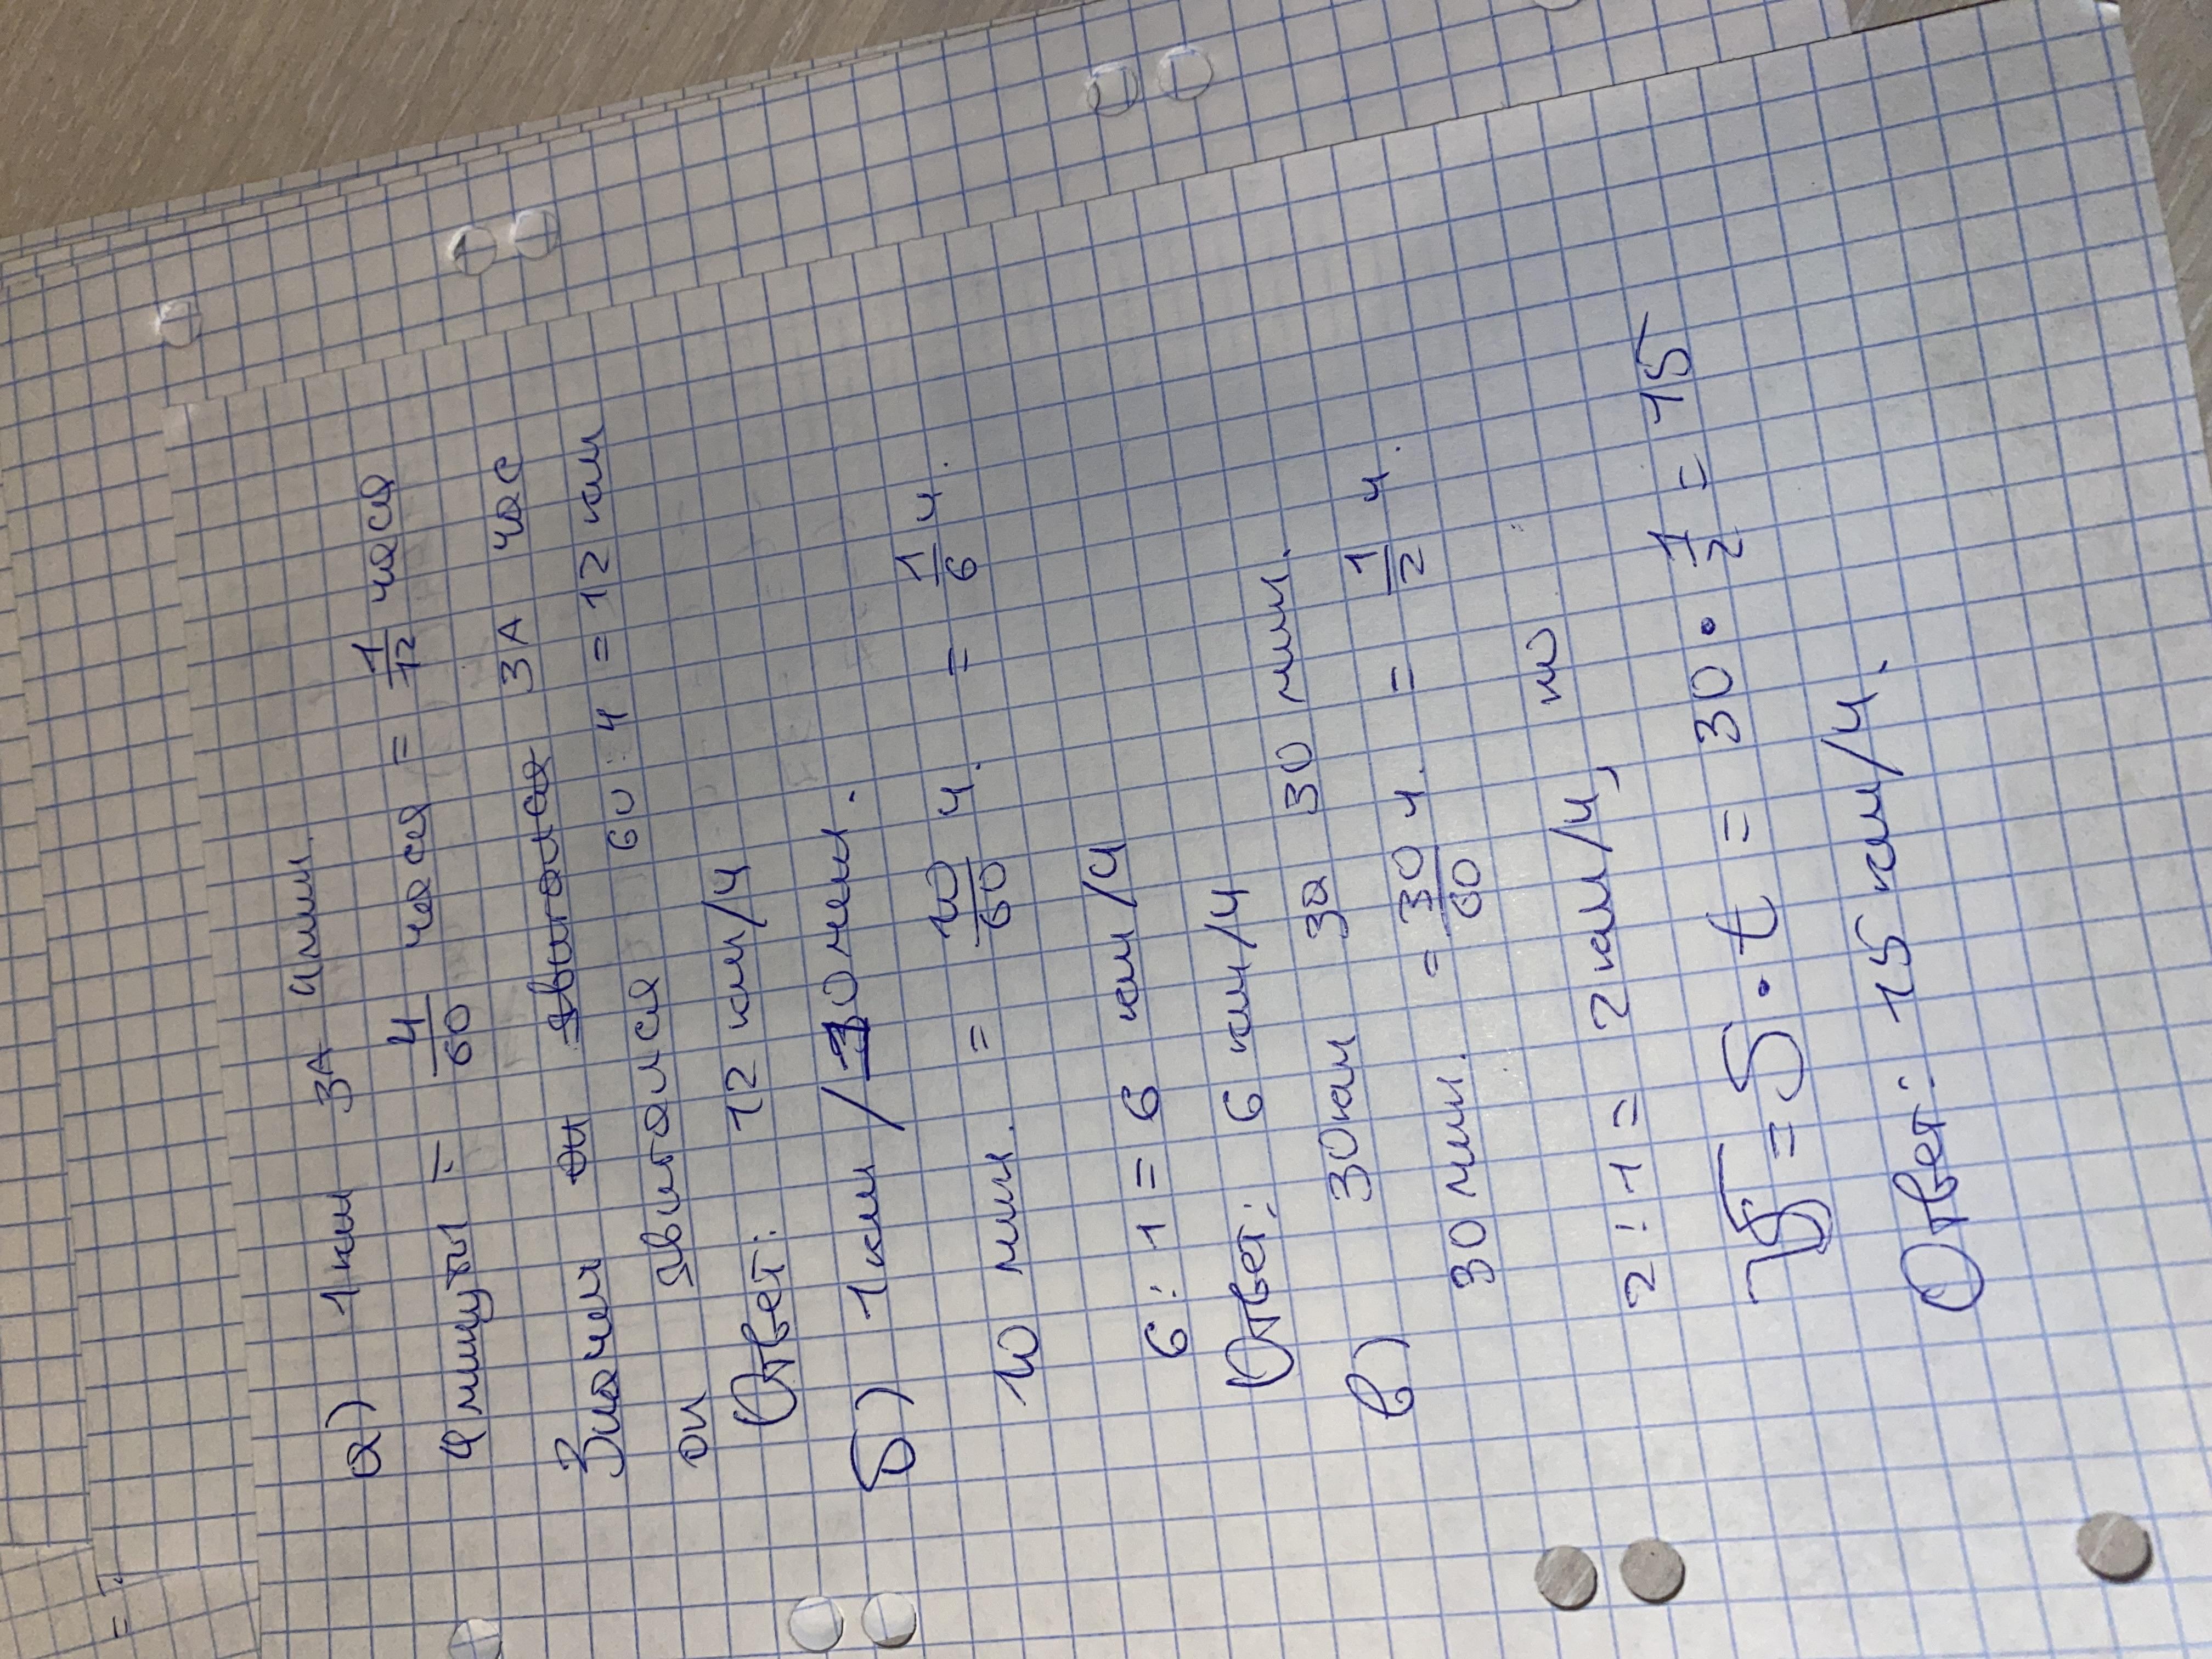 а) 1 км ЗА 4 мин.
4 минуты = 4/60 часа = 1/12 часа
Значит он двигался ЗА час
он двигался 60 : 4 = 12 км
Ответ: 12 км/ч
б) 1 км / 10 мин.
10 мин. = 10/60 ч. = 1/6 ч.
6 : 1 = 6 км/ч
Ответ: 6 км/ч
в) 30 км за 30 мин.
30 мин. = 30/60 ч. = 1/2 ч.
2 : 1 = 2 км/ч, но
V = S · t = 30 · 1/2 = 15
Ответ: 15 км/ч.
= ?